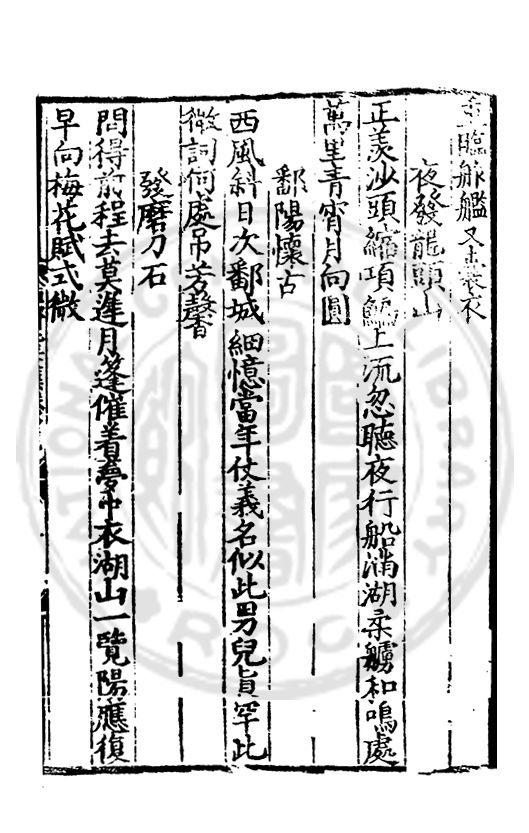 臨舴艦又 裳衣
夜發龍頭山
正羨沙頭縮項鯿上流忽聽夜行船滿湖柔艣和鳴處
萬里青霄月向圓
鄱陽懷古
西風斜日次鄱城細憶當年仗義名似此男兒真罕此
微詞何處吊芳馨
發磨刀石
問得前程去莫遲月篷催着夢中衣湖山一覽陽應復
早向梅花賦式微